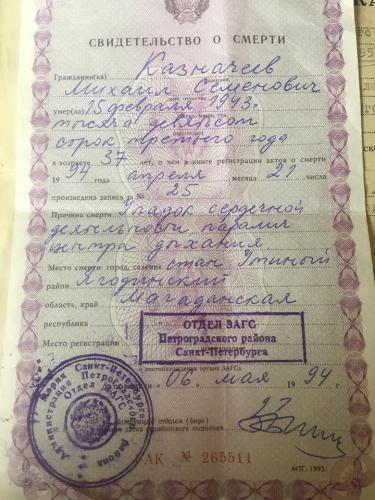 СВИДЕТЕЛЬСТВО О СМЕРТИ
Гражданин(ка) Казначеев
Михаил Семенович
умер(ла) 15 февраля 1943г.
тысяча девятьсот
сорок третьего года
в возрасте 37 лет, о чем в книге регистрации актов о смерти
19 94 года апреля месяца 21 числа
произведена запись за № 25
Причина смерти Упадок сердечной
деятельности паралич
центра дыхания.
Место смерти: город, селение стан Утиный
район Ягодинский
область, край Магаданская
республика
Место регистрации
ОТДЕЛ ЗАГС
Петроградского района
Санкт-Петербурга
06 мая 19 94 г.
Мэрия Санкт-Петербурга
Администрация Петроградского района
Отдел ЗАГС
АК № 265511
МПГ. 1993.